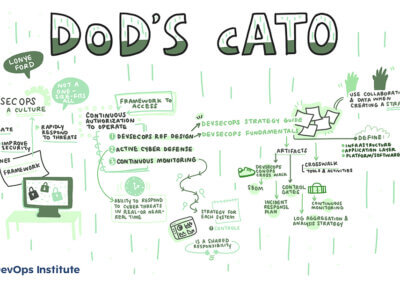 DoD'S cATO
LONYE
FORD
SECOPS
A CULTURE
NOT A
ONE-
SIZE-FITS
ALL
RAPIDLY
RESPOND
TO THREATS
IMPROVE
SECURITY
FRAMEWORK
CONTINUOUS
AUTHORIZATION
TO OPERATE
FRAMEWORK TO
ACCESS
DEVSECOPS REF DESIGN
ACTIVE CYBER DEFENSE
CONTINUOUS MONITORING
ABILITY TO RESPOND
TO CYBER THREATS
IN REAL OR NEAR-
REAL TIME
DEVSECOPS STRATEGY GUIDE
DEVSECOPS FUNDAMENTALS
STRATEGY FOR
EACH SYSTEM
CONTROLS
IS A SHARED
RESPONSIBILITY
USE COLLABORA
& DATA WHEN
CREATING A STRA
DEFINE
INFRASTRUCTURE
APPLICATION LAYER
PLATFORM/SOFTWARE
ARTIFACTS
CROSSWALK
TOOLS & ACTIVITIES
DEVSECOPS
CONOPS
SBOM
INCIDENT
RESPONSE
PLAN
CONTROL
GATES
CONTINUOUS
MONITORING
LOG AGGREGATION &
ANALYSIS STRATEGY
evOps Institute